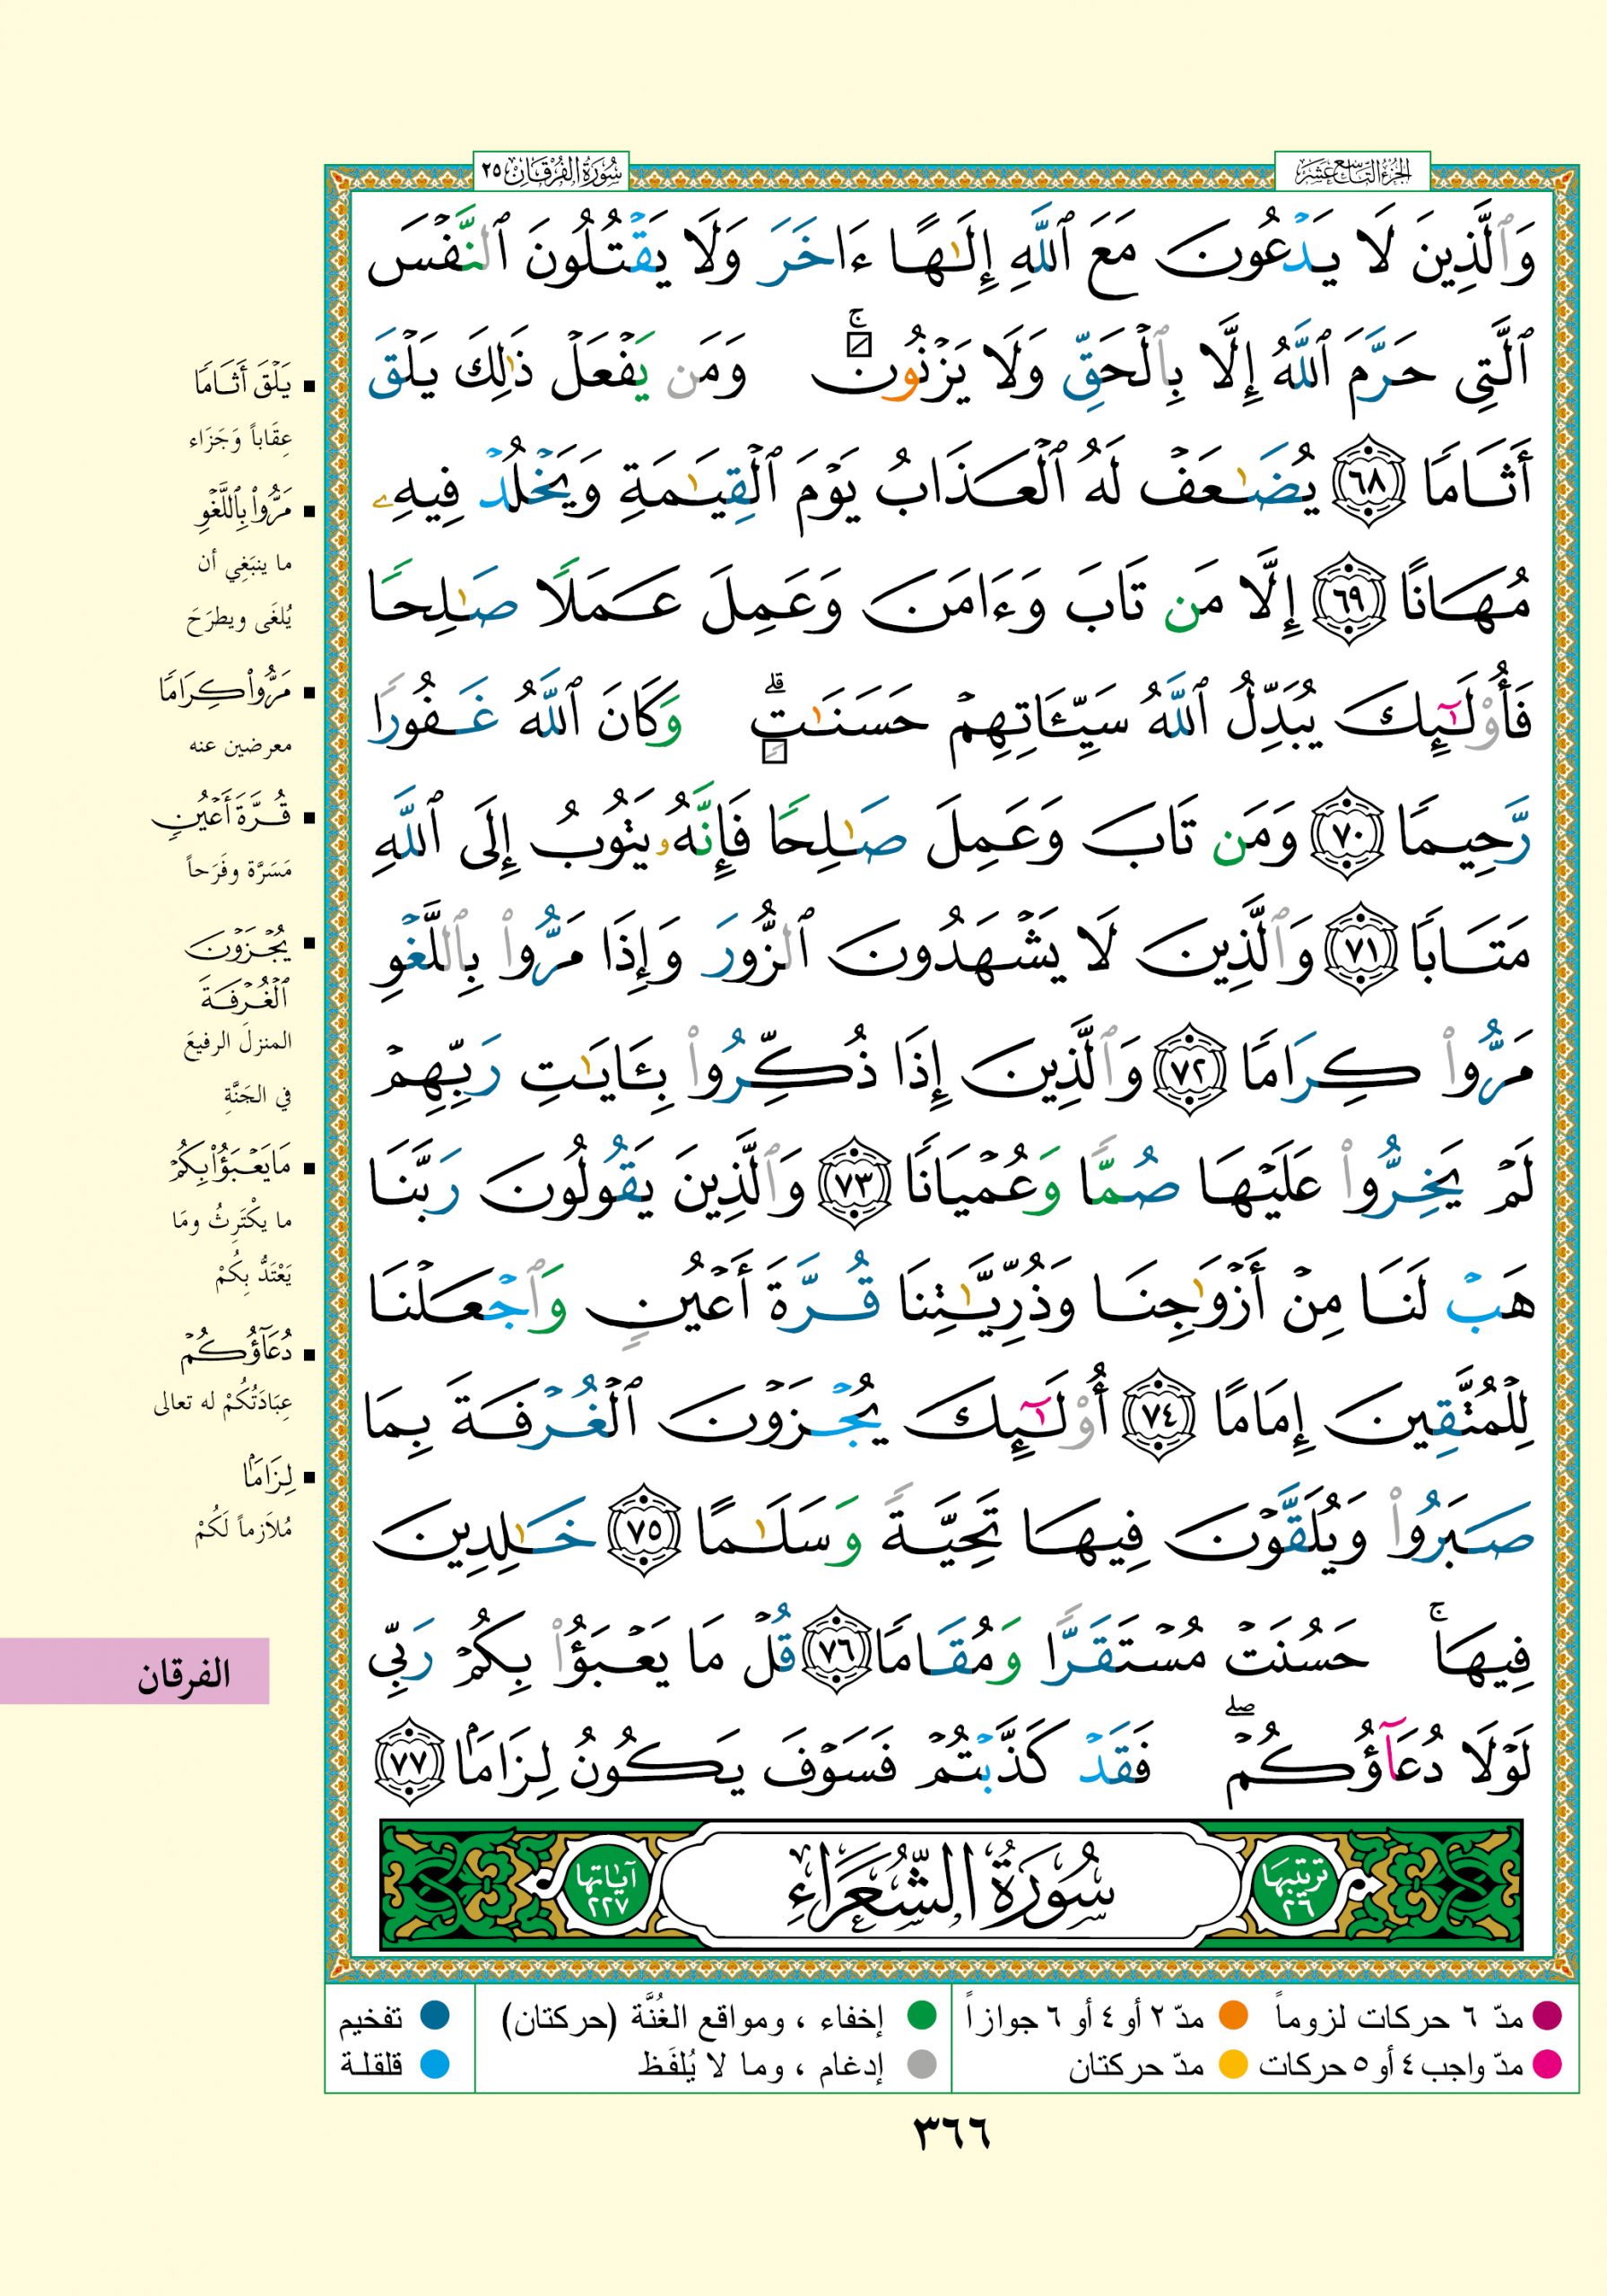 الجزء التاسع عشر
سورة الفرقان ٢٥
وَٱلَّذِينَ لَا يَدْعُونَ مَعَ ٱللَّهِ إِلَٰهًا ءَاخَرَ وَلَا يَقْتُلُونَ ٱلنَّفْسَ
ٱلَّتِى حَرَّمَ ٱللَّهُ إِلَّا بِٱلْحَقِّ وَلَا يَزْنُونَ ۚ وَمَن يَفْعَلْ ذَٰلِكَ يَلْقَ
أَثَامًا ٦٨ يُضَٰعَفْ لَهُ ٱلْعَذَابُ يَوْمَ ٱلْقِيَٰمَةِ وَيَخْلُدْ فِيهِۦ
مُهَانًا ٦٩ إِلَّا مَن تَابَ وَءَامَنَ وَعَمِلَ عَمَلًا صَٰلِحًا
فَأُو۟لَٰٓئِكَ يُبَدِّلُ ٱللَّهُ سَيِّـَٔاتِهِمْ حَسَنَٰتٍ ۗ وَكَانَ ٱللَّهُ غَفُورًا
رَّحِيمًا ٧٠ وَمَن تَابَ وَعَمِلَ صَٰلِحًا فَإِنَّهُۥ يَتُوبُ إِلَى ٱللَّهِ
مَتَابًا ٧١ وَٱلَّذِينَ لَا يَشْهَدُونَ ٱلزُّورَ وَإِذَا مَرُّوا۟ بِٱللَّغْوِ
مَرُّوا۟ كِرَامًا ٧٢ وَٱلَّذِينَ إِذَا ذُكِّرُوا۟ بِـَٔايَٰتِ رَبِّهِمْ
لَمْ يَخِرُّوا۟ عَلَيْهَا صُمًّا وَعُمْيَانًا ٧٣ وَٱلَّذِينَ يَقُولُونَ رَبَّنَا
هَبْ لَنَا مِنْ أَزْوَٰجِنَا وَذُرِّيَّٰتِنَا قُرَّةَ أَعْيُنٍ وَٱجْعَلْنَا
لِلْمُتَّقِينَ إِمَامًا ٧٤ أُو۟لَٰٓئِكَ يُجْزَوْنَ ٱلْغُرْفَةَ بِمَا
صَبَرُوا۟ وَيُلَقَّوْنَ فِيهَا تَحِيَّةً وَسَلَٰمًا ٧٥ خَٰلِدِينَ
فِيهَا ۚ حَسُنَتْ مُسْتَقَرًّا وَمُقَامًا ٧٦ قُلْ مَا يَعْبَؤُا۟ بِكُمْ رَبِّى
لَوْلَا دُعَآؤُكُمْ ۖ فَقَدْ كَذَّبْتُمْ فَسَوْفَ يَكُونُ لِزَامًۢا ٧٧
ترتيبها ٢٦
سُورَةُ الشُّعَرَاءِ
آياتها ٢٢٧
يَلْقَ أَثَامًا
عِقَاباً وَجَزَاء
مَرُّوا۟ بِٱللَّغْوِ
ما ينبَغِي أن
يُلغَى ويطرَحَ
مَرُّوا۟ كِرَامًا
معرضين عنه
قُرَّةَ أَعْيُنٍ
مَسَرَّة وفَرَحاً
يُجْزَوْنَ
ٱلْغُرْفَةَ
المنزلَ الرفيعَ
في الجَنَّةِ
مَا يَعْبَؤُا۟ بِكُمْ
ما يكْتَرِثُ ومَا
يَعْتَدُّ بِكُمْ
دُعَآؤُكُمْ
عِبَادَتُكُمْ له تعالى
لِزَامًۢا
مُلاَزماً لَكُمْ
الفرقان
مدّ ٦ حركات لزوماً مدّ ٢ أو ٤ أو ٦ جوازاً إخفاء ، ومواقع الغُنَّة (حركتان) تفخيم
مدّ واجب ٤ أو ٥ حركات مدّ حركتان إدغام ، وما لا يُلفَظ قلقلة
٣٦٦